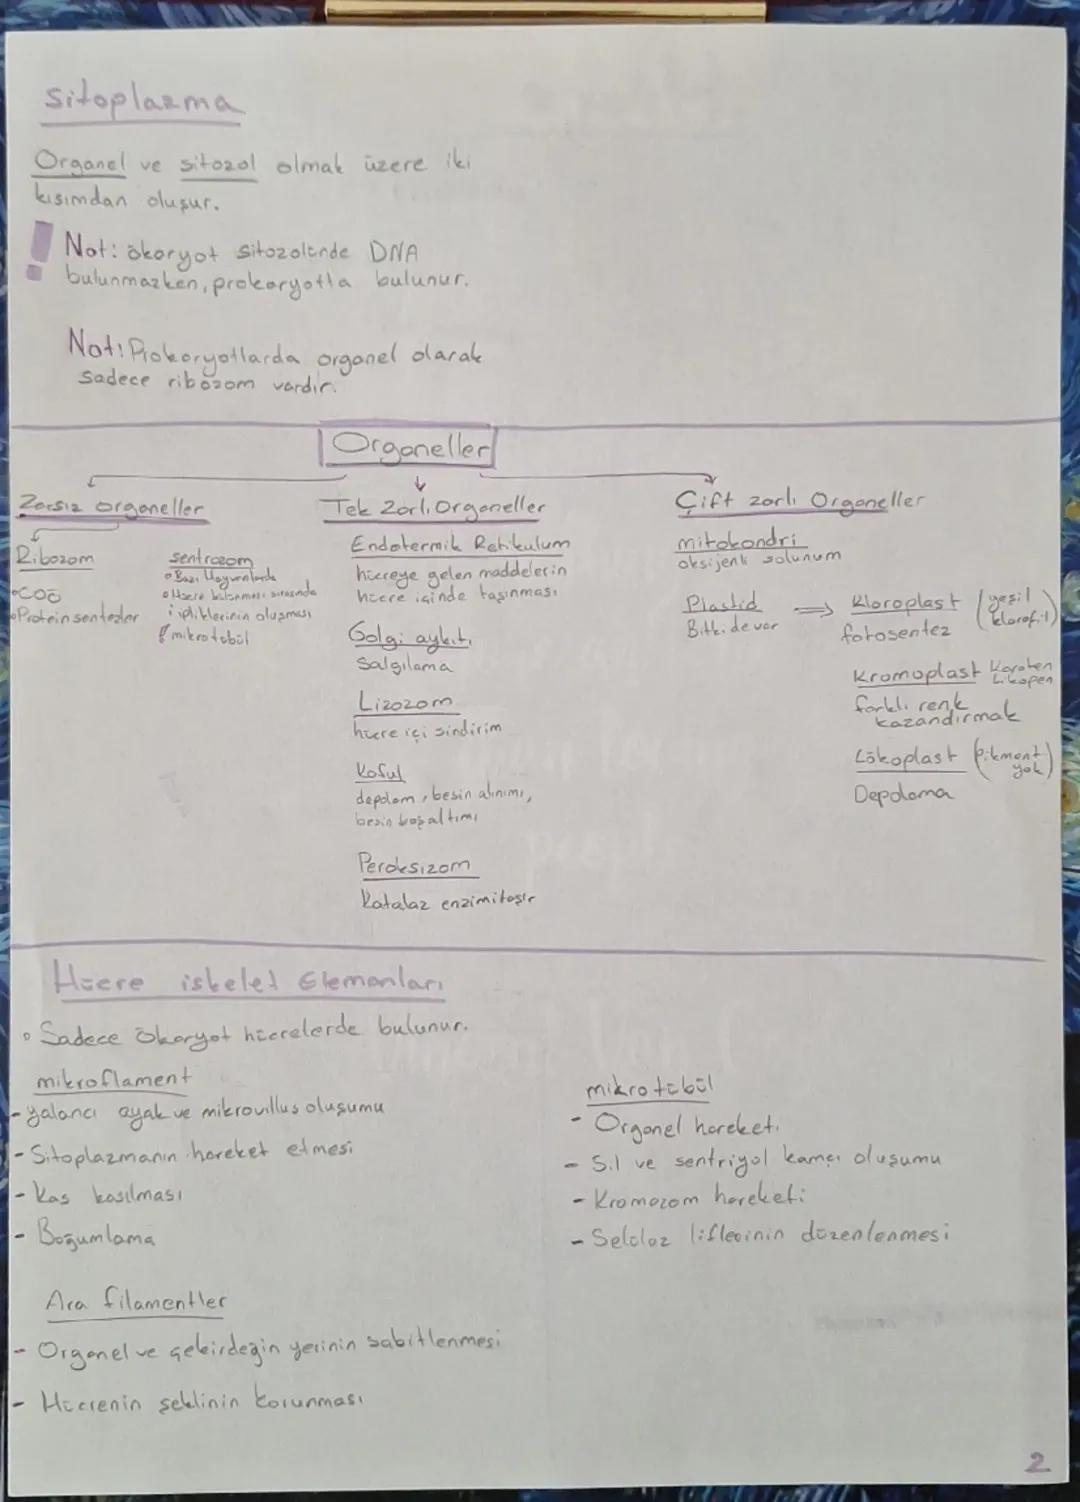 Sitoplazma
Organel ve sitozol olmak üzere iki
kısımdan oluşur.
! Not: ökaryot sitozolünde DNA
bulunmazken, prokaryotta bulunur.
Not: Prokaryotlarda organel olarak
sadece ribozom vardır.
Organeller
Zarsız organeller
Ribozom
Protein sentezler
sentrozom
Bazı Hayvanlarda
Hücre bölünmesi sırasında
ipliklerinin oluşması
mikrotübül
Tek Zarlı Organeller
Endotermik Retikulum
hücreye gelen maddelerin
hücre içinde taşınması
Golgi aykıtı
Salgılama
Lizozom
hücre içi sindirim
Koful
depolam, besin alınımı,
besin boşaltımı
Peroksizom
Katalaz enzimi taşır
Çift zarlı Organeller
mitokondri
oksijenli solunum
Plastid
Bitkide var
⇒ Kloroplast (yeşil
klorofil)
fotosentez
Kromoplast Karoten
Likopen
farklı renk
kazandırmak
Lökoplast (pikment
yok)
Depolama
Hücre iskelet Elemanları
Sadece Ökaryot hücrelerde bulunur.
mikroflament
- yalancı ayak ve mikrovillus oluşumu
- Sitoplazmanın hareket etmesi
- Kas kasılması
- Boğumlama
Ara filamentler
- Organel ve çekirdeğin yerinin sabitlenmesi
- Hücrenin şeklinin korunması
mikrotübül
- Organel hareketi
- Sil ve sentriyol kamçı oluşumu
- Kromozom hareketi
- Selüloz liflerinin düzenlenmesi
2